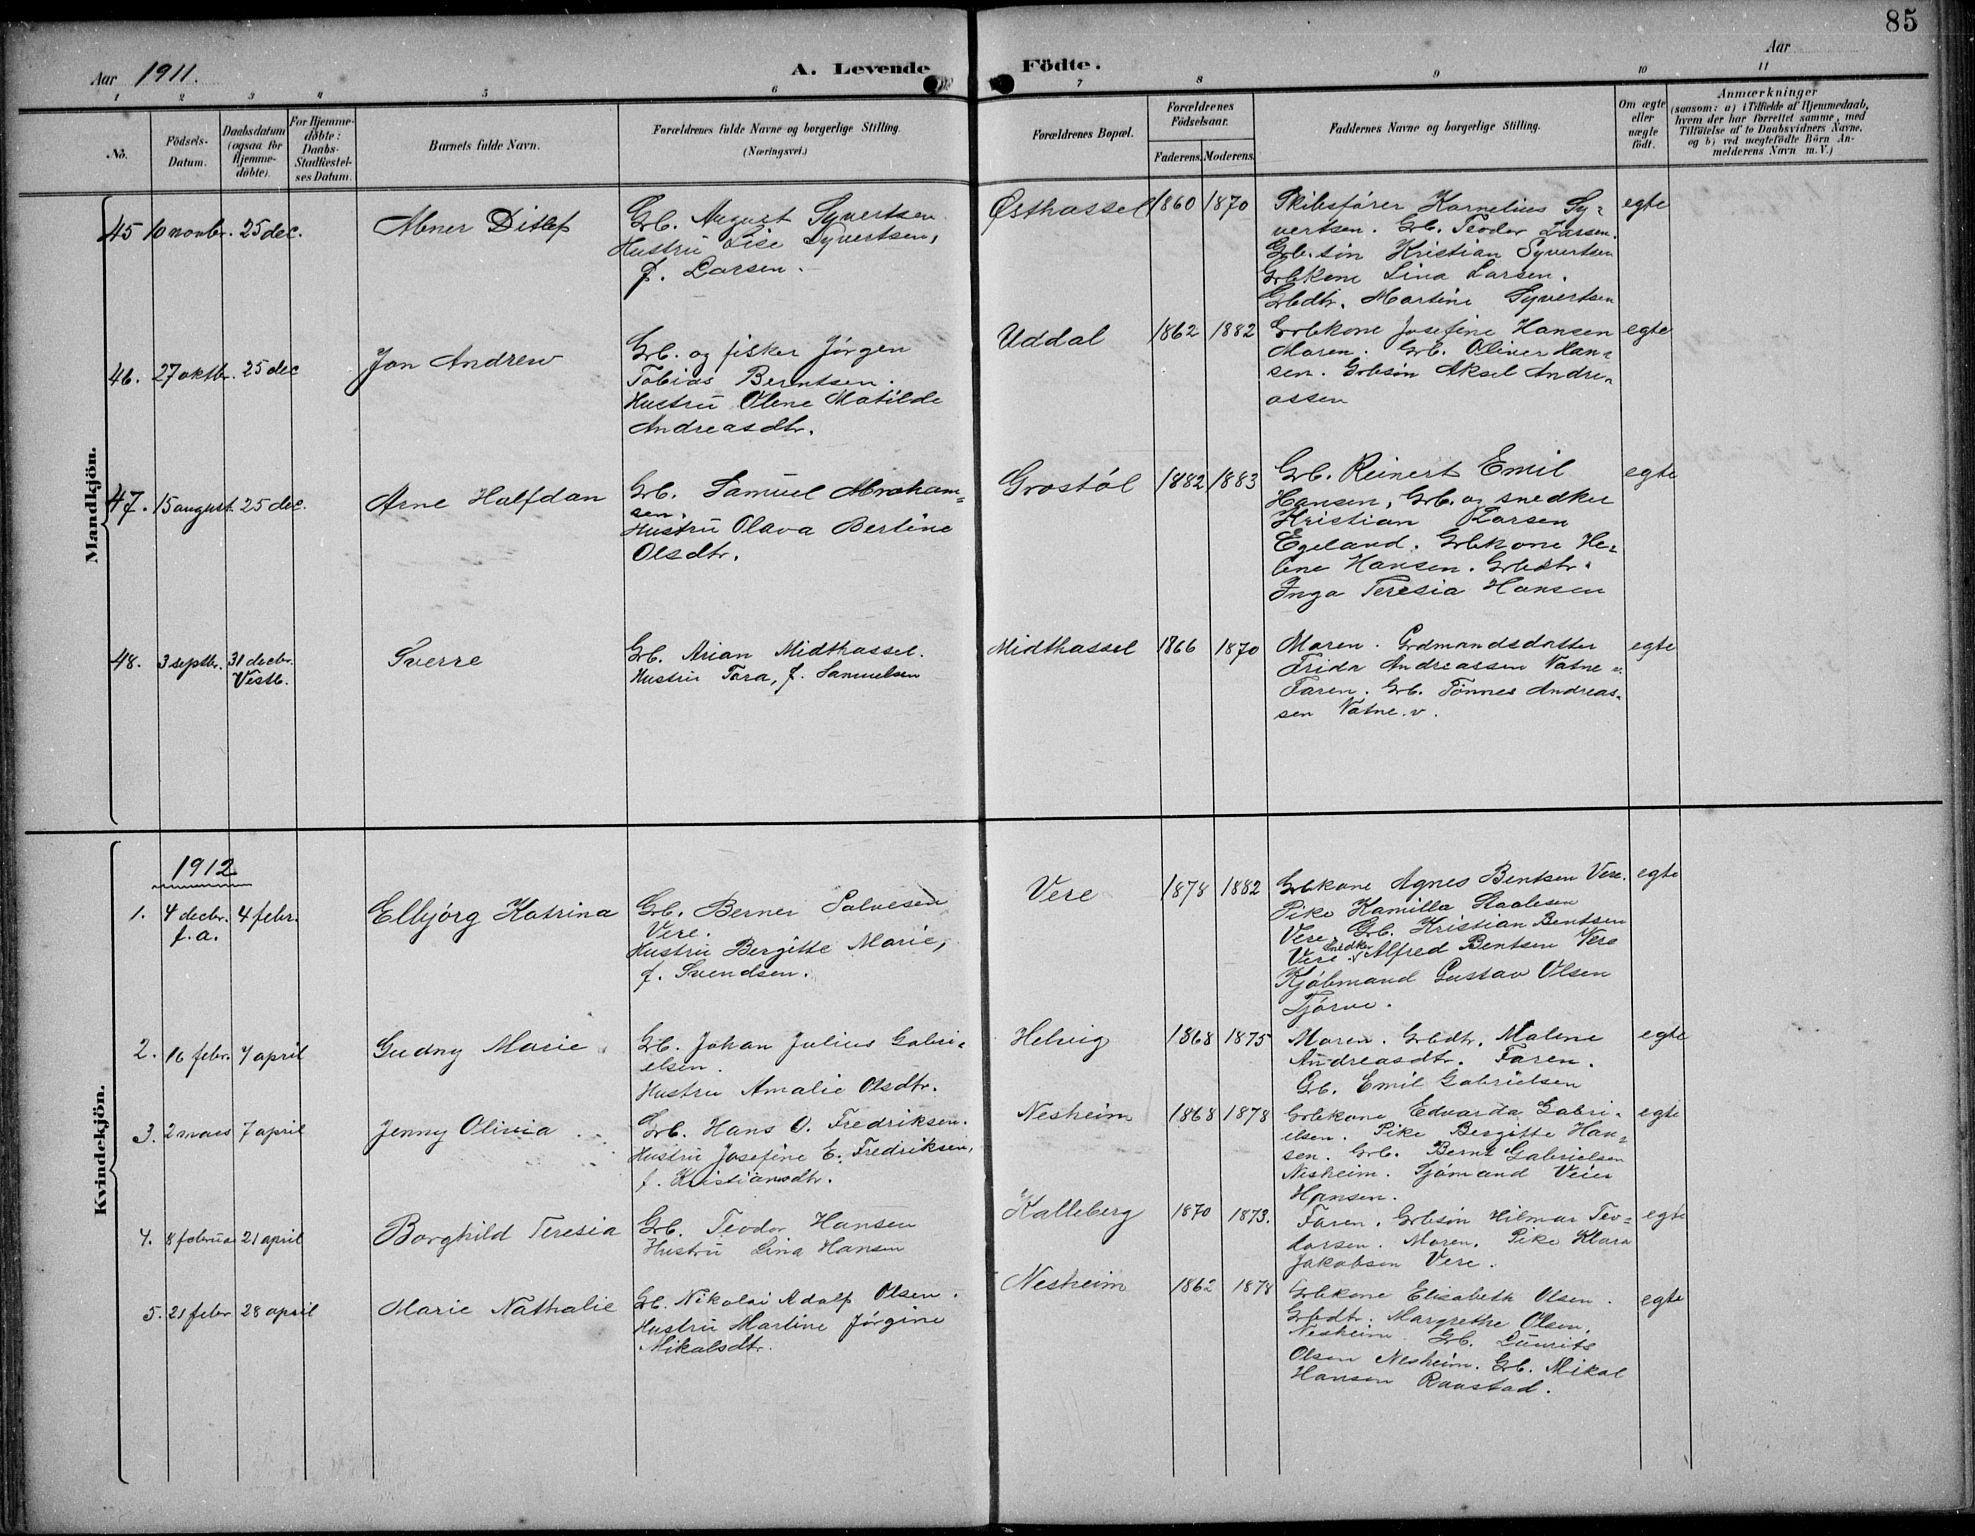 85
Aar 1911.
A. Levende Födte.
Aar
1 2 3 4 5 6 7 8 9 10 11
No.
Födsels-
Datum.
Daabsdatum
(ogsaa for
Hjemme-
döbte).
For Hjemme-
döbte:
Daabs-
Stadfæstel-
ses Datum.
Barnets fulde Navn.
Forældrenes fulde Navne og borgerlige Stilling.
(Næringsvei.)
Forældrenes Bopæl.
Forældrenes
Födselsaar.
Faderens. Moderens.
Faddernes Navne og borgerlige Stilling.
Om ægte
eller
uægte
født.
Anmærkninger
(saasom: a) i Tilfælde af Hjemmedaab,
hvem der har forrettet samme, med
Tilföielse af to Daabsvidners Navne,
og b) ved uægtefödte Börn An-
melderens Navn m. V.)
Mandkjön.
45 10 novbr. 25 dec.
Abner Ditlef
Grb. August Syvertsen
Hustru Lise Syvertsen,
f. Larsen.
Østhassel
1860 1870
Skibsfører Kornelius Sy-
vertsen. Grb. Teodor Larsen.
Grb.søn Kristian Syvertsen
Grbkone Lina Larsen.
Grbdtr. Martine Syvertsen
egte
46. 27 oktbr. 25 dec
Jon Andrew
Grb. og fisker Jørgen
Tobias Berntsen.
Hustru Olene Matilde
Andreasdtr.
Uddal
1862 1882
Grbkone Josefine Hansen
Moren. Grb. Oliver Han-
sen. Grbsøn Aksel Andre-
assen
egte
47. 15 august 25 dec.
Arne Halfdan
Grb. Samuel Abraham-
sen.
Hustru Olava Bertine
Olsdtr.
Grostøl
1882 1883
Grb. Reinert Emil
Hansen, Grb. og snedker
Kristian Larsen
Egeland. Grbkone He-
line Hansen. Grbdtr.
Inga Teresia Hansen
egte
48. 3 septbr. 31 decbr.
Vestb.
Sverre
Grb. Arian Midthassel.
Hustru Tora, f. Samuelsen
Midthassel
1866 1870
Moren. Grdmandsdatter
Frida Andreassen Vatne v.
Faren. Grb. Tønnes Andreas-
sen Vatne. v.
egte
Kvindekjön.
1912
1. 4 decbr. 4 febr.
f.a.
Elbjørg Katrina
Grb. Berner Salvesen
Vere.
Hustru Bergitte Marie,
f. Svendsen.
Vere
1878 1882
Grbkone Agnes Bentsen Vere.
Pike Kamilla Staalesen
Vere. Grb. Kristian Bentsen
Vere. Snedker Alfred Bentsen Vere
Kjøbmand Gustav Olsen
Tjørve.
egte
2. 16 febr. 7 april
Gudny Marie
Grb. Johan Julius Gabri-
elsen.
Hustru Amalie Olsdtr.
Helvig
1868 1875
Moren. Grbdtr. Malene
Andreasdtr. Faren.
Grb. Emil Gabrielsen
egte
3. 2 mars 7 april
Jenny Olivia
Grb. Hans O. Fredriksen.
Hustru Josefine E. Fredriksen,
f. Kristiansdtr.
Nesheim
1868 1878
Grbkone Edvarda Gabri-
elsen. Pike Bergitte Han-
sen. Grb. Bernt Gabrielsen
Nesheim. Sjømand Veier
Hansen.
egte
4. 8 februar 21 april
Borghild Teresia
Grb. Teodor Hansen
Hustru Lina Hansen
Kalleberg
1870 1873.
Faren. Grbsøn Hilmar Teo-
dorsen. Moren. Pike Klara
Jakobsen Vere.
egte
5. 21 febr 28 april
Marie Nathalie
Grb. Nikolai Adolf Olsen.
Hustru Martine Jørgine
Mikalsdtr.
Nesheim
1862 1878
Grbkone Elisabeth Olsen.
Grbdtr. Margrethe Olsen,
Nesheim. Grb. Laurits
Olsen Nesheim. Grb. Mikal
Hansen Raustad.
egte